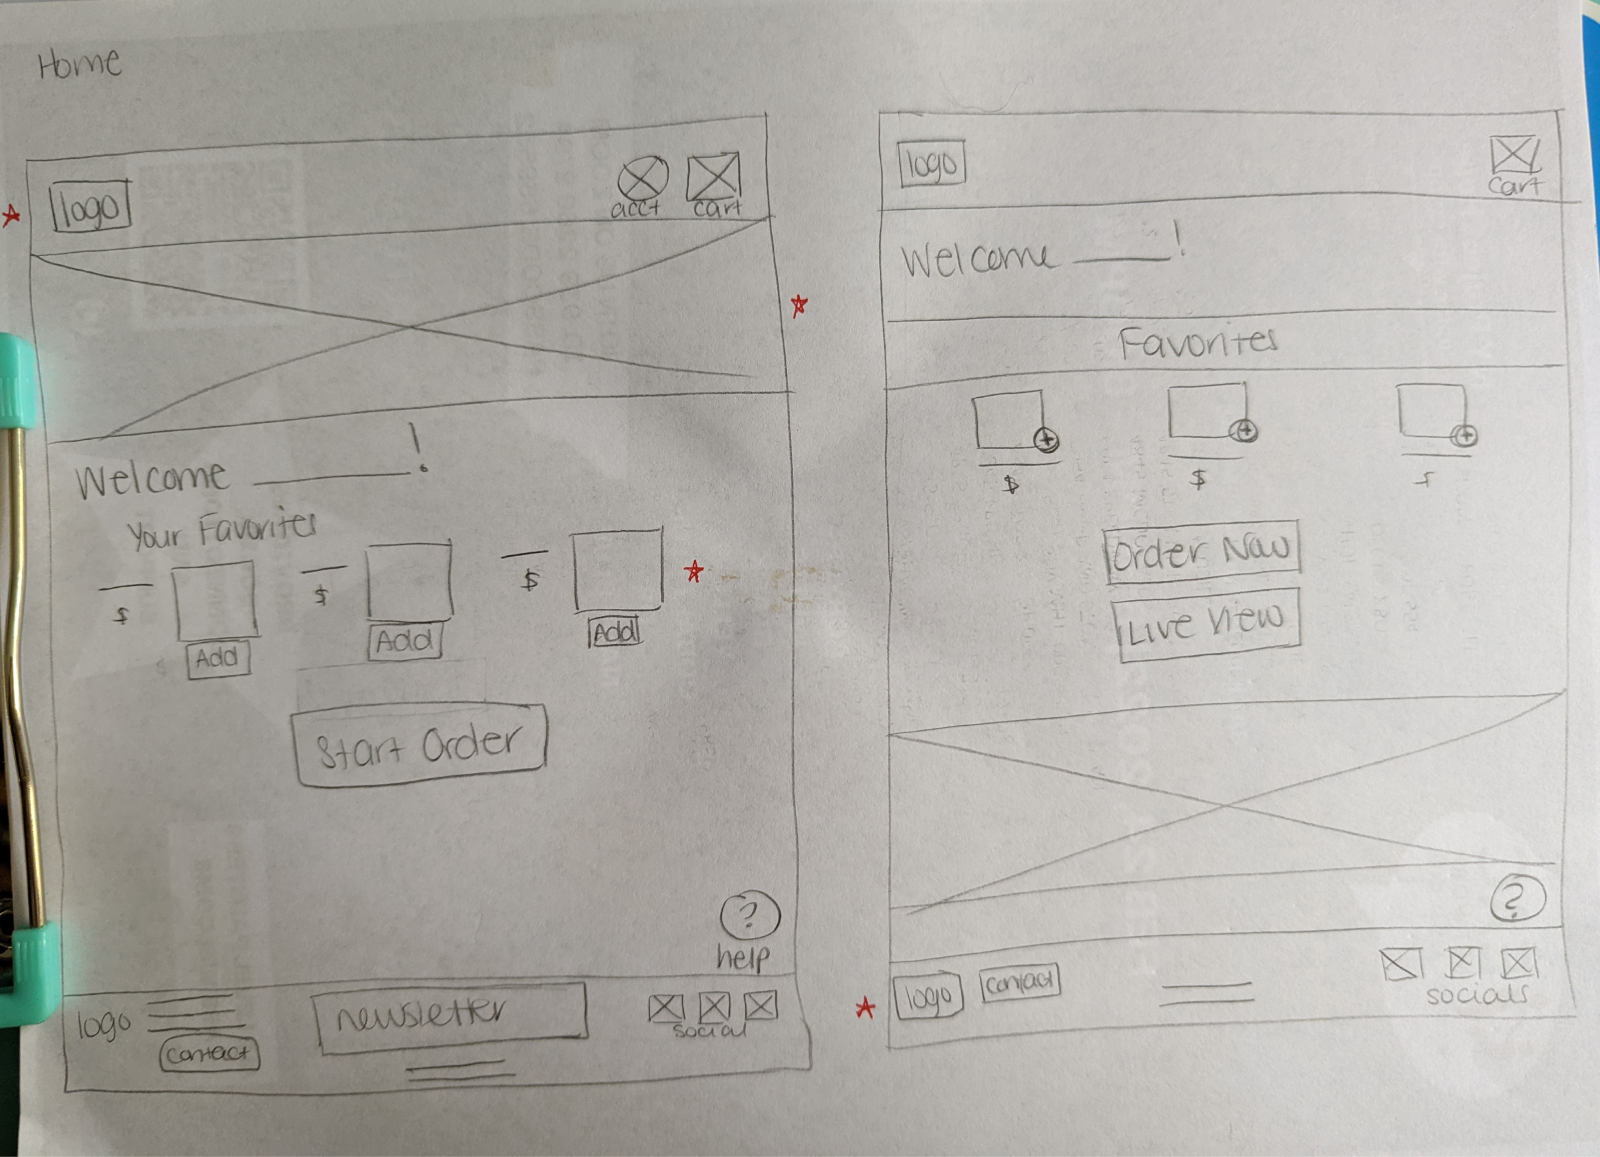 Home
logo
acct
cart
Welcome ______!
Your Favorites
$
$
$
Add
Add
Add
Start Order
?
help
logo
contact
newsletter
social
logo
cart
Welcome ____!
Favorites
+
+
+
$
$
$
Order Now
Live View
?
logo
contact
socials